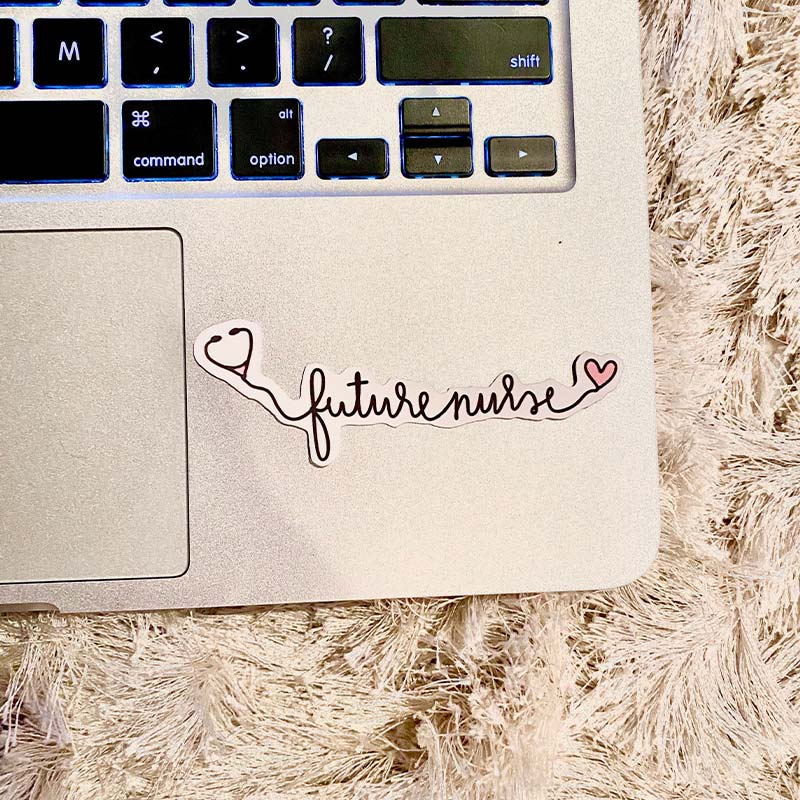 M < > ?
, . / shift
⌘ alt ▲
command option ◄ ▼ ►
future nurse